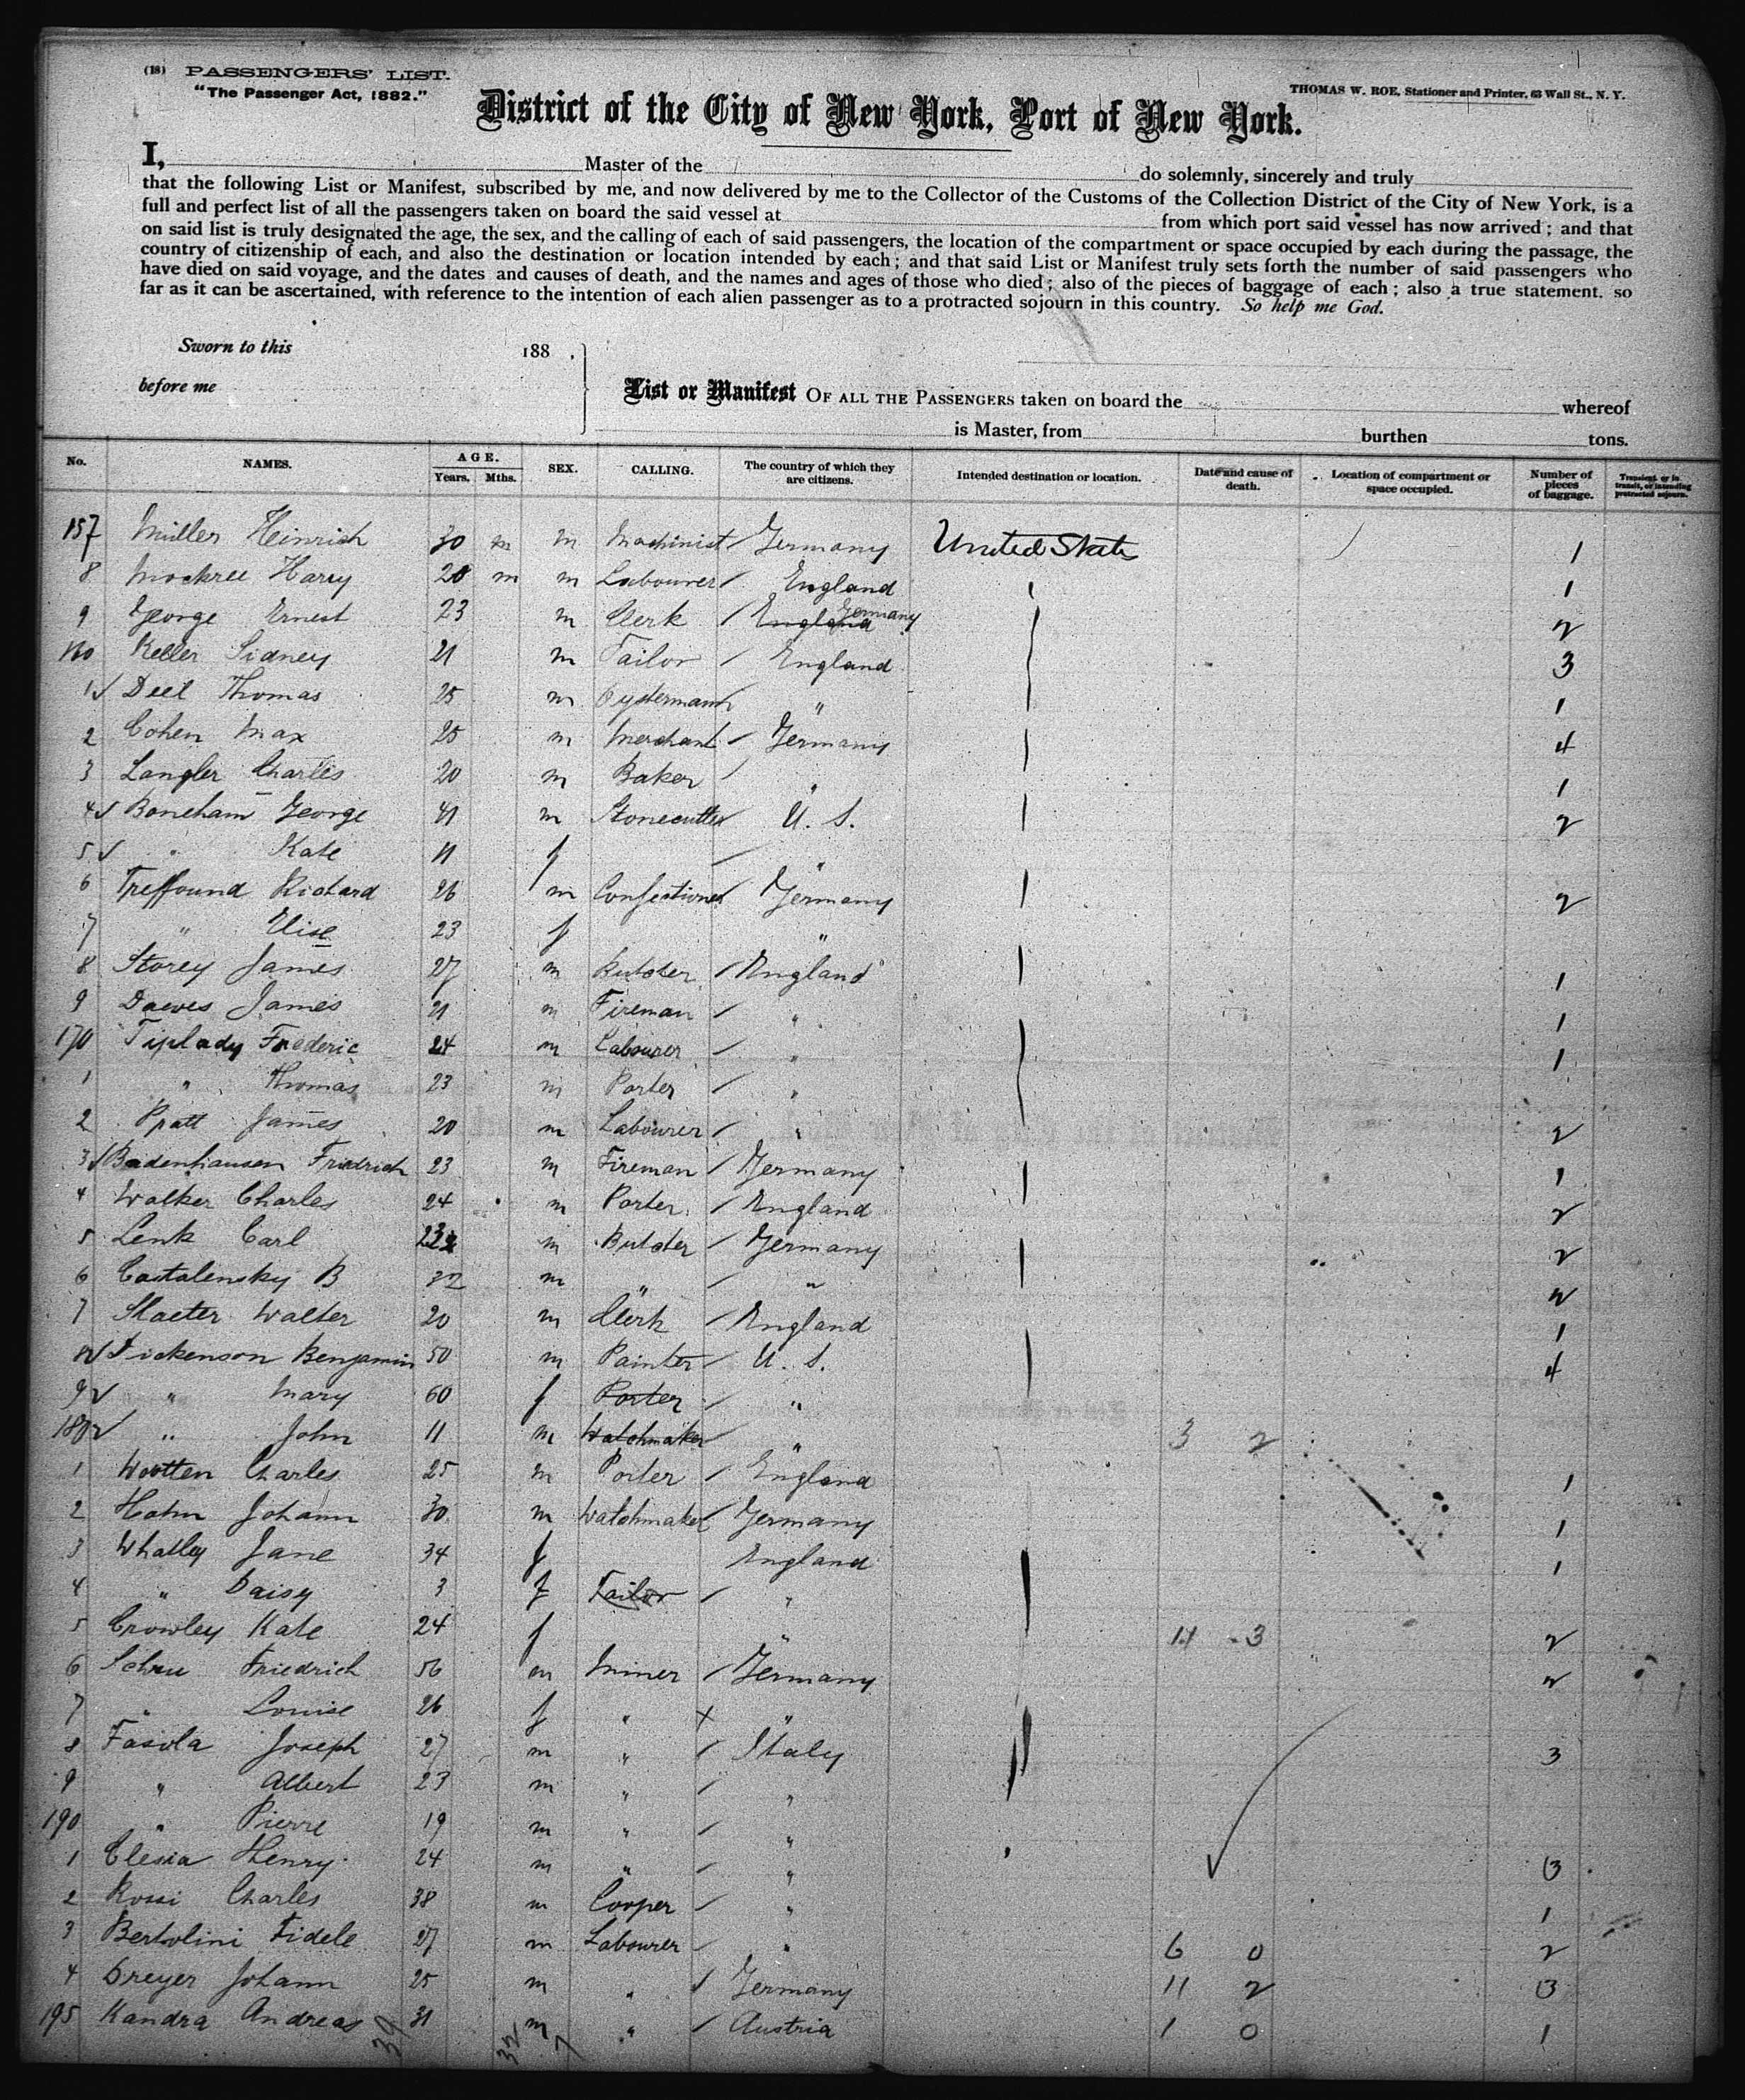 (18) PASSENGERS' LIST.
"The Passenger Act, 1882."
THOMAS W. ROE, Stationer and Printer, 63 Wall St., N. Y.
District of the City of New York, Port of New York.
I, Master of the do solemnly, sincerely and truly
that the following List or Manifest, subscribed by me, and now delivered by me to the Collector of the Customs of the Collection District of the City of New York, is a
full and perfect list of all the passengers taken on board the said vessel at from which port said vessel has now arrived; and that
on said list is truly designated the age, the sex, and the calling of each of said passengers, the location of the compartment or space occupied by each during the passage, the
country of citizenship of each, and also the destination or location intended by each; and that said List or Manifest truly sets forth the number of said passengers who
have died on said voyage, and the dates and causes of death, and the names and ages of those who died; also of the pieces of baggage of each; also a true statement, so
far as it can be ascertained, with reference to the intention of each alien passenger as to a protracted sojourn in this country. So help me God.
Sworn to this 188 .
before me
List or Manifest OF ALL THE PASSENGERS taken on board the whereof
is Master, from burthen tons.
No. NAMES. AGE. Years. Mths. SEX. CALLING. The country of which they are citizens. Intended destination or location. Date and cause of death. Location of compartment or space occupied. Number of pieces of baggage. Transient, or in transit, or intending protracted sojourn.
157 Müller Heinrich 30 m m Machinist / Germany United States 1
8 Mockree Harry 20 m m Labourer / England 1
9 George Ernest 23 m Clerk / England Germany 2
160 Keller Sidney 21 m Tailor / England 3
1 ✓ Deel Thomas 25 m Oystermann / " 1
2 Cohen Max 25 m Merchant / Germany 4
3 Langler Charles 20 m Baker / " 1
4 ✓ Boneham George 41 m Stonecutter / U. S. 2
5 ✓ " Kate 11 f / "
6 Treffound Richard 26 m Confectioner / Germany 2
7 " Elise 23 f "
8 Storey James 27 m Butcher / England 1
9 Dawes James 21 m Fireman / " 1
170 Tiplady Frederic 24 m Labourer / " 1
1 " Thomas 23 m Porter / "
2 Pratt James 20 m Labourer / " 2
3 ✓ Badenhausen Friedrich 23 m Fireman / Germany 1
4 Walker Charles 24 m Porter / England 2
5 Lenk Carl m Butcher / Germany 2
6 Castalensky B 32 m " / " 2
7 Slaeter Walter 20 m Clerk / England 1
8 ✓ Dickenson Benjamin 50 m Painter / U. S. 4
9 ✓ " Mary 60 f Porter / "
180 ✓ " John 11 m Watchmaker / " 3 2
1 Wootten Charles 25 m Porter / England 1
2 Hahn Johann 30 m Watchmaker / Germany 1
3 Whatley Jane 34 f England 1
4 " Daisy 3 f Tailor / "
5 Crowley Kate 24 f " 11 3 2
6 Friedrich 56 m Miner / Germany 2
7 " Louise 26 f " x "
8 Fasola Joseph 27 m " / Italy 3
9 " Albert 23 m " / "
190 " Pierre 19 m " / "
1 Clesia Henry 24 m " / " 3
2 Rossi Charles 38 m Cooper / " 1
3 Bertolini Fidele 27 m Labourer / " 6 0 2
4 Dreyer Johann 25 m " / Germany 11 2 3
195 Kandra Andreas 31 m " / Austria 1 0 1
39 32 7